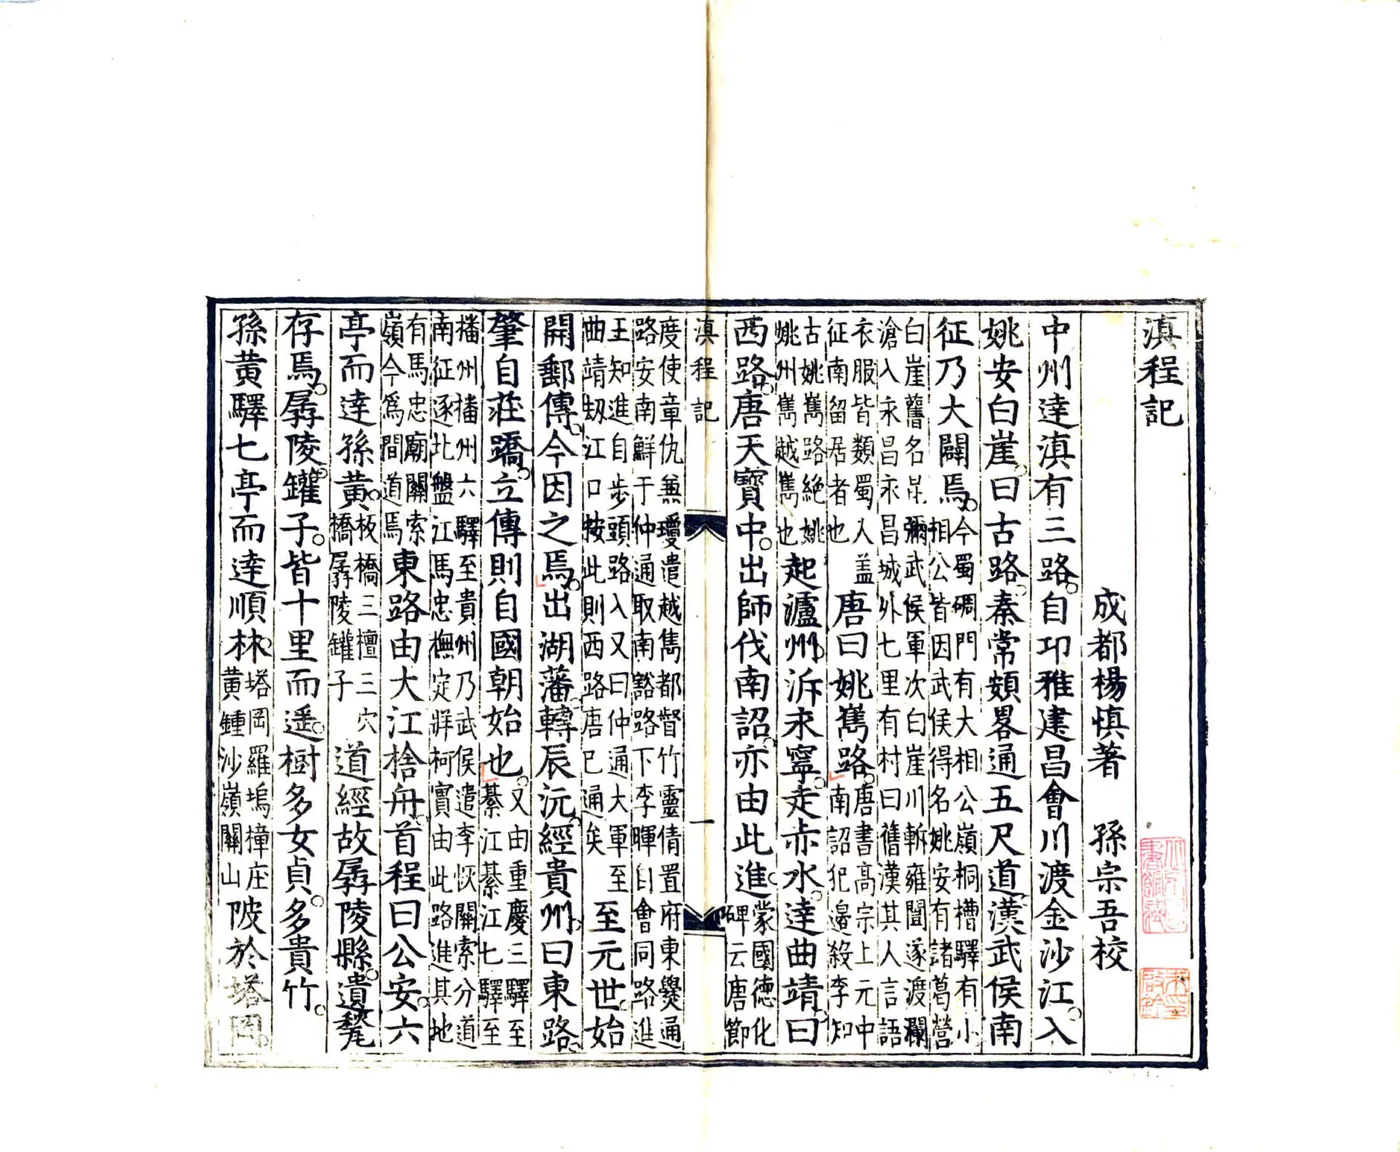 滇程記
成都楊慎著　孫宗吾校
中州達滇有三路。自邛雅建昌會川渡金沙江。入
姚安白崖。曰古路。秦常頞畧通五尺道。漢武侯南
征乃大闢焉。
今蜀碉門有大相公嶺桐槽驛有小
相公皆因武侯得名姚安有諸葛營
白崖舊名昆彌武侯軍次白崖川斬雍闓遂渡瀾
滄入永昌永昌城外七里有村曰舊漢其人言語
衣服皆類蜀人蓋
征南留居者也
唐曰姚嶲路。
唐書高宗上元中
南詔犯邊殺李知
古姚嶲路絶姚
姚州嶲越嶲也
起瀘州。泝永寧。走赤水。達曲靖曰
西路。唐天寶中。出師伐南詔。亦由此進。
蒙國德化
碑云唐節
滇程記
一
度使章仇兼瓊遣越嶲都督竹靈倩置府東爨通
路安南鮮于仲通取南谿路下李暉自會同路進
王知進自步頭路入又曰仲通大軍至
曲靖刼江口按此則西路唐已通矣
至元世。始
開郵傳。今因之焉。出湖藩。轉辰沅。經貴州。曰東路。
肇自莊蹻。立傳則自國朝始也。
又由重慶三驛至
綦江綦江七驛至
播州播州六驛至貴州乃武侯遣李恢關索分道
南征逐北盤江馬忠撫定牂柯實由此路進其地
有馬忠廟關索
嶺今為間道焉
東路由大江捨舟。首程曰公安。六
亭而達孫黃。
板橋三檀三穴
橋孱陵罐子
道經故孱陵縣。遺甃
存焉。孱陵罐子。皆十里而遥。樹多女貞。多貴竹。
孫黃驛七亭而達順林。
塔岡羅塢樟庄
黃鍾沙嶺關山
陂於塔岡。